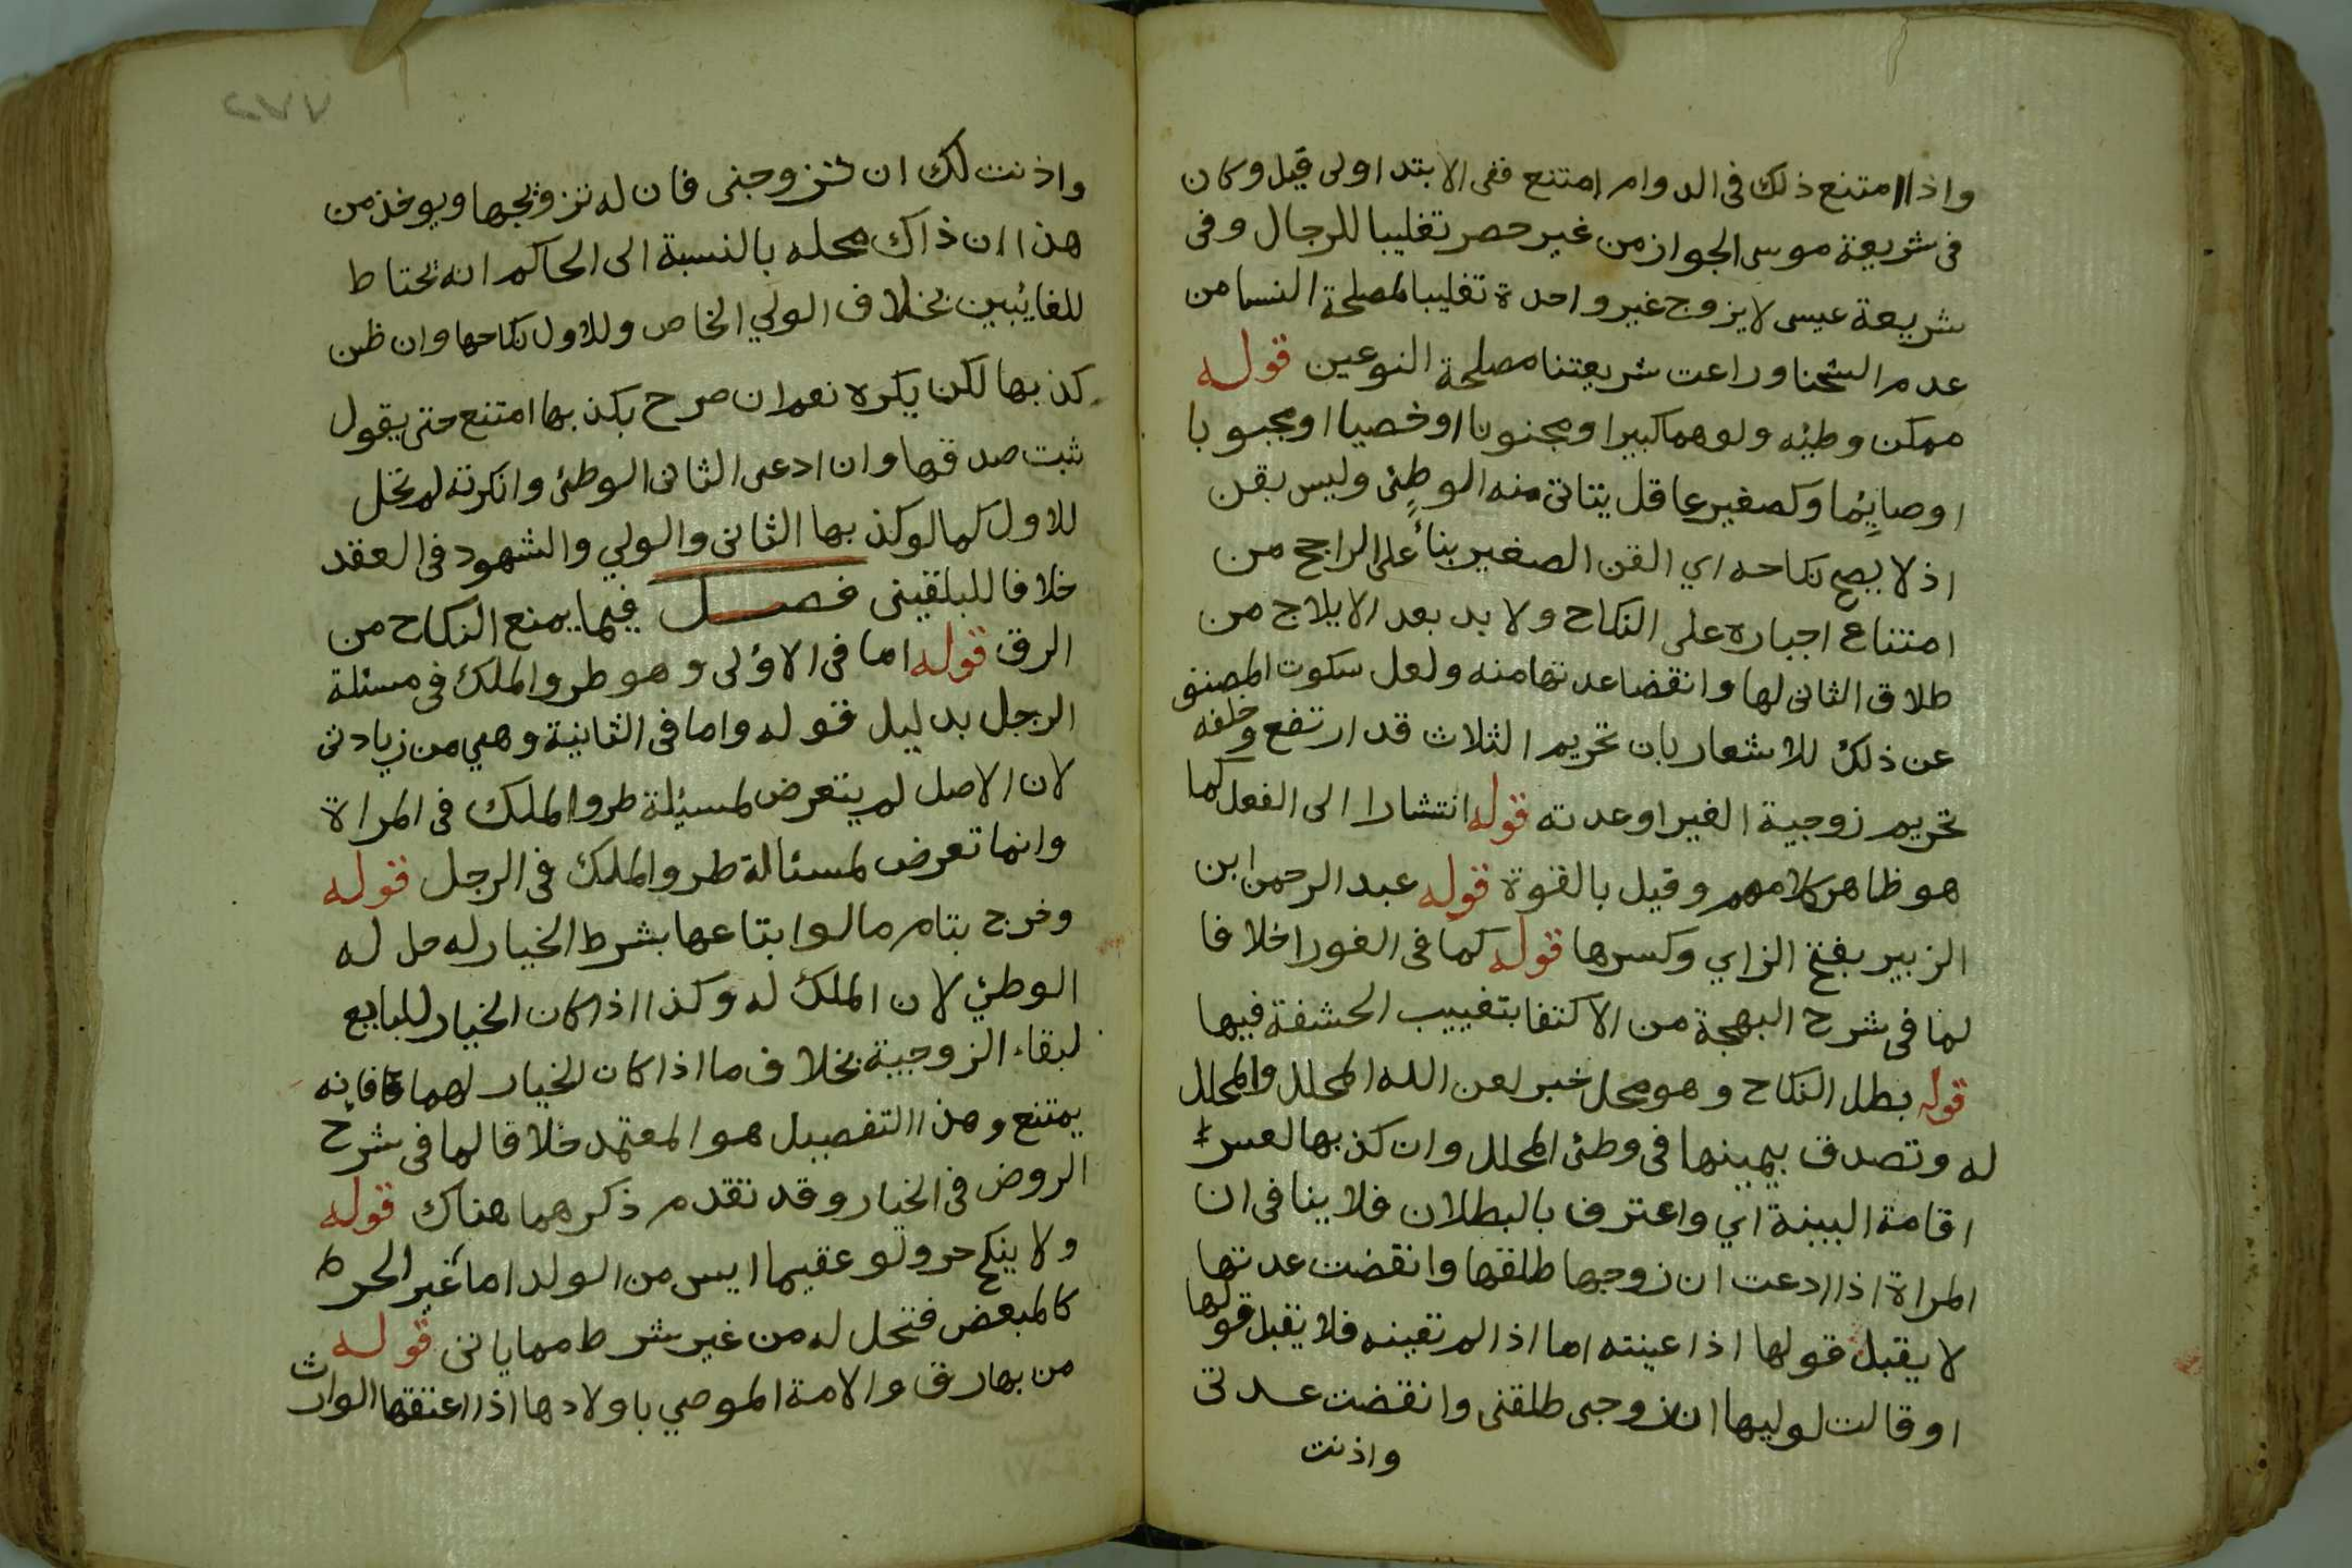 واذا امتنع ذلك فى الدوام امتنع ففى الابتدا اولى قيل وكان
فى شريعة موسى الجواز من غير حصر تغليبا للرجال وفى
شريعة عيسى لا يزوج غير واحدة تغليبا لمصلحة النسا من
عدم الشحنا وراعت شريعتنا مصلحة النوعين قوله
ممكن وطيئه ولو هما كبيرا ومجنونا او خصيا او مجبوبا
او صايما وكصغير عاقل يتاتى منه الوطئ وليس بقن
اذ لا يصح نكاحه اي القن الصغير بنأ على الراجح من
امتناع اجباره على النكاح ولا بد بعد الايلاج من
طلاق الثانى لها وانقضا عدتها منه ولعل سكوت المصنف
عن ذلك للاشعار بان تحريم الثلاث قد ارتفع وخلفه
تحريم زوجية الغير او عدته قوله انتشارا الى الفعل كما
هو ظاهر كلامهم وقيل بالقوة قوله عبد الرحمن ابن
الزبير بفتح الزاي وكسرها قوله كما فى الغورا خلافا
لما فى شرح البهجة من الاكتفا بتغييب الحشفة فيها
قوله بطل النكاح وهو محل خبر لعن الله المحلل والمحلل
له وتصدق بيمينها فى وطئ المحلل وان كذبها لعسر
اقامة البينة اي واعترف بالبطلان فلا ينافى ان
المراة اذا ادعت ان زوجها طلقها وانقضت عدتها
لا يقبل قولها اذا عينته اما اذا لم تعينه فلا يقبل قولها
او قالت لوليها ان زوجى طلقنى وانقضت عدتى
واذنت
٢٧٧
واذنت لك ان تزوجنى فان له تزويجها ويوخذ من
هذا ان ذاك محله بالنسبة الى الحاكم انه يحتاط
للغايبين بخلاف الولي الخاص وللاول نكاحها وان ظن
كذبها لكن يكره نعم ان صرح بكذبها امتنع حتى يقول
ثبت صدقها وان ادعى الثانى الوطئ وانكرته لم تحل
للاول كما لو كذبها الثانى والولي والشهود فى العقد
خلافا للبلقينى فصل فيما يمنع النكاح من
الرق قوله اما فى الاؤلى وهو طرو الملك فى مسئلة
الرجل بدليل قوله واما فى الثانية وهي من زيادتى
لان الاصل لم يتعرض لمسيئلة طرو الملك فى المراة
وانما تعرض لمسئالة طرو الملك فى الرجل قوله
وخرج بتام ما لو ابتاعها بشرط الخيار له حل له
الوطئ لان الملك له وكذا اذا كان الخيار للبايع
لبقاء الزوجية بخلاف ما اذا كان الخيار لهما فانه
يمتنع وهذا التفصيل هو المعتمد خلافا لما فى شرح
الروض فى الخيار وقد تقدم ذكرهما هناك قوله
ولا ينكح حر ولو عقيما ايس من الولد اما غير الحر
كالمبعض فتحل له من غير شرط مما ياتى قوله
من بها رق والامة الموصي باولادها اذا اعتقها الوارث